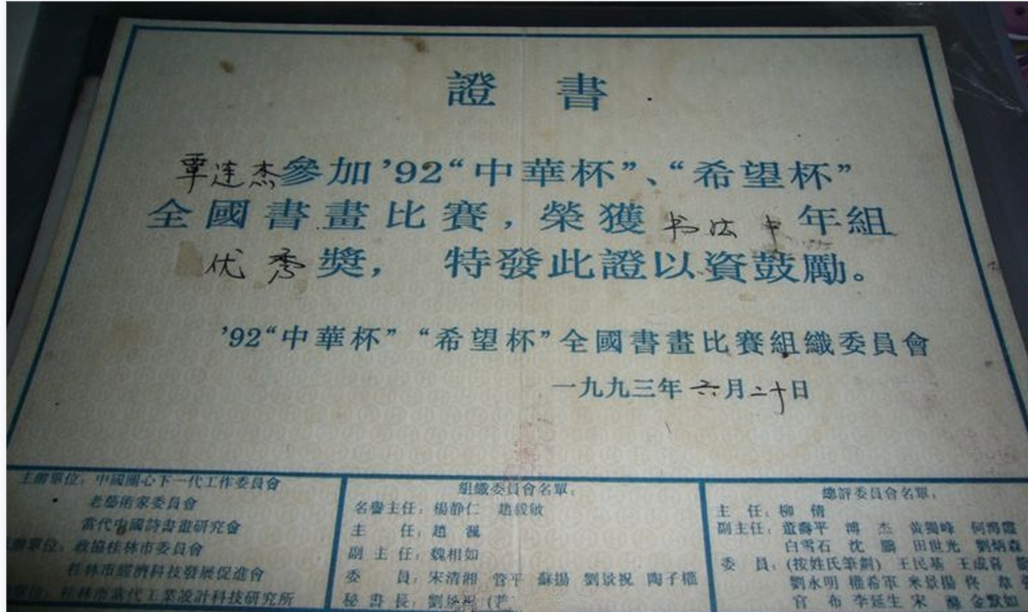 證書
覃连杰參加'92“中華杯”、“希望杯”
全國書畫比賽，榮獲书法中年組
优秀獎，特發此證以資鼓勵。
'92“中華杯”“希望杯”全國書畫比賽組織委員會
一九九三年六月二十日
主辦單位：中國關心下一代工作委員會
老藝術家委員會
當代中國詩書畫研究會
辦單位：政協桂林市委員會
桂林市經濟科技發展促進會
單位：桂林市當代工業設計科技研究所
組織委員會名單：
名譽主任：楊静仁 趙毅敏
主任：趙渢
副主任：魏相如
委員：宋清湘 管平 蘇揚 劉景祝 陶子權
秘書長：劉景祝（兼
總評委員會名單：
主任：柳倩
副主任：董壽平 溥杰 黄獨峰 何海霞
白雪石 沈鵬 田世光 劉炳森
委員：（按姓氏筆劃）王民基 王成喜
劉永明 權希軍 米景揚 佟韋
官布 李延生 宋 金默如